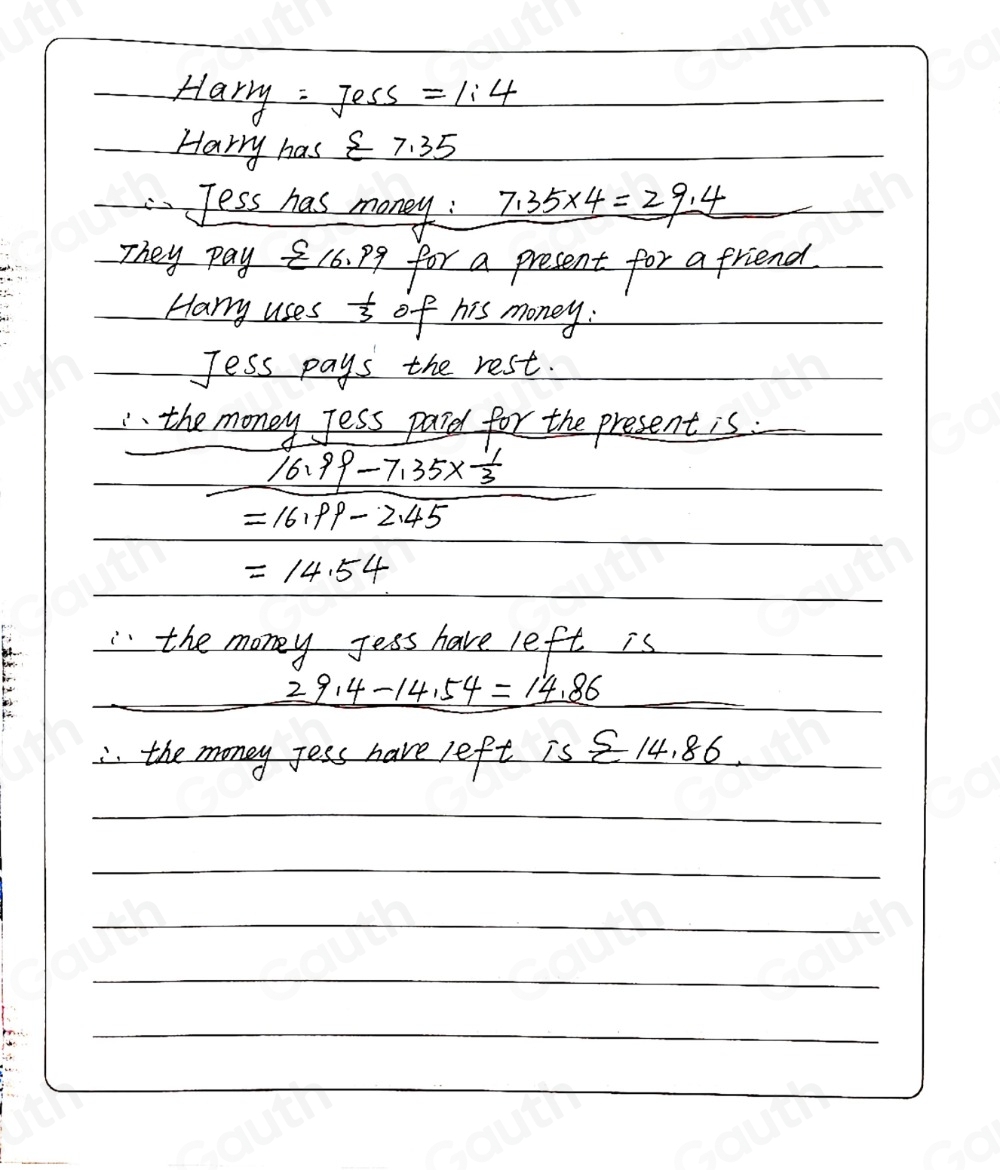 Harry : Jess = 1:4
Harry has £ 7.35
∴ Jess has money: 7.35×4=29.4
They pay £16.99 for a present for a friend.
Harry uses 1/3 of his money:
Jess pays the rest.
∴ the money Jess paid for the present is:
16.99-7.35×1/3
=16.99-2.45
= 14.54
∴ the money Jess have left is
29.4-14.54=14.86
∴ the money Jess have left is £14.86.
Gauth